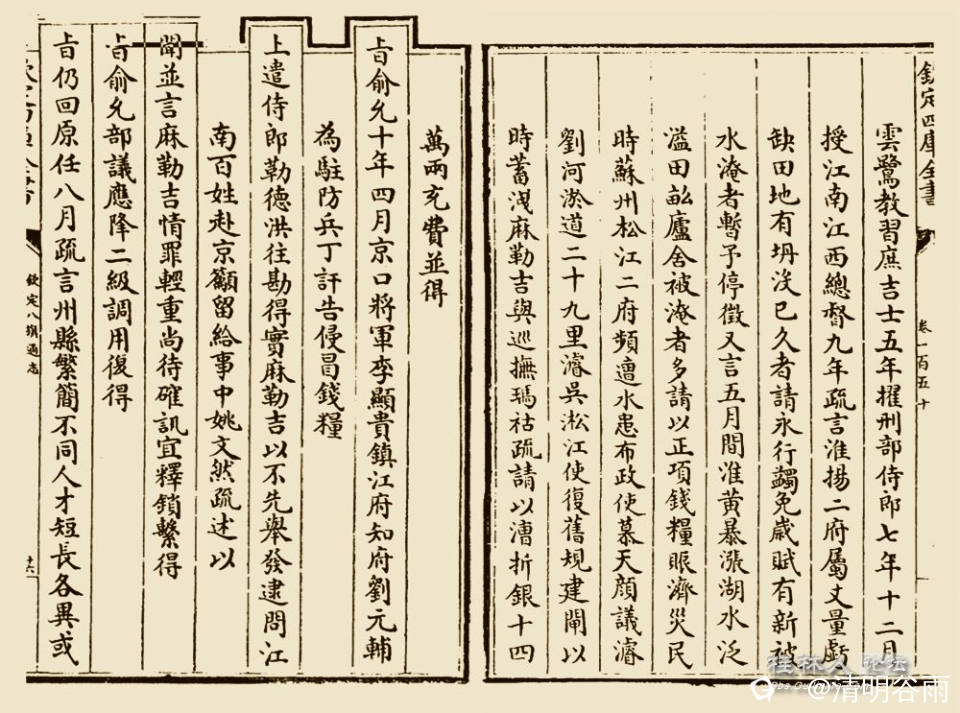 欽定四庫全書
卷一百五十
雲鷺教習庶吉士五年擢刑部侍郎七年十二月
授江南江西總督九年疏言淮揚二府屬丈量虧
缺田地有坍没已久者請永行蠲免歲賦有新被
水淹者暫予停徵又言五月間淮黄暴漲湖水泛
溢田畝廬舍被淹者多請以正項錢糧賑濟災民
時蘇州松江二府頻遭水患布政使慕天顔議濬
劉河淤道二十九里濬吳淞江使復舊規建閘以
時蓄洩麻勒吉與巡撫瑪祜疏請以漕折銀十四
萬兩充費並得
㫖俞允十年四月京口將軍李顯貴鎮江府知府劉元輔
為駐防兵丁訐告侵冒錢糧
上遣侍郎勒德洪往勘得實麻勒吉以不先舉發逮問江
南百姓赴京籲留給事中姚文然疏述以
聞並言麻勒吉情罪輕重尚待確訊宜釋鎖繫得
㫖俞允部議應降二級調用復得
㫖仍回原任八月疏言州縣繁簡不同人才短長各異或
欽定八旗通志
十六
桂林人论坛
@清明谷雨